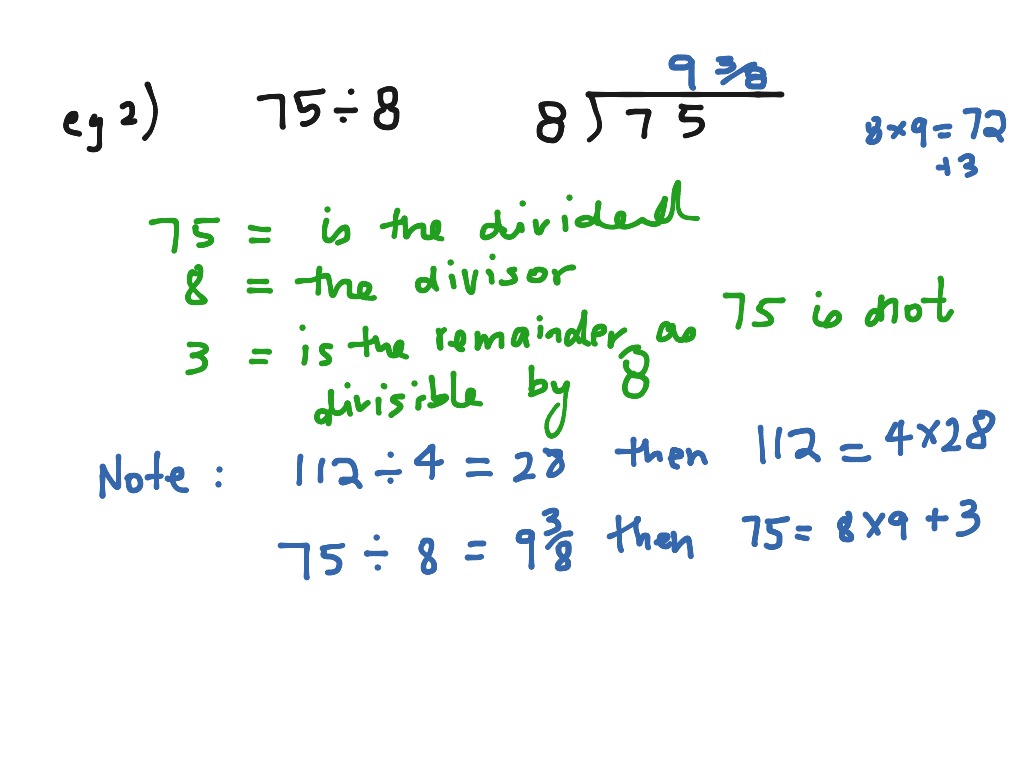 9 3/8
eg 2) 75 ÷ 8 8)75
8×9=72
+3
75 = is the dividend
8 = the divisor
3 = is the remainder as 75 is not
divisible by 8
Note : 112 ÷ 4 = 28 then 112 = 4×28
75 ÷ 8 = 9 3/8 then 75 = 8×9+3